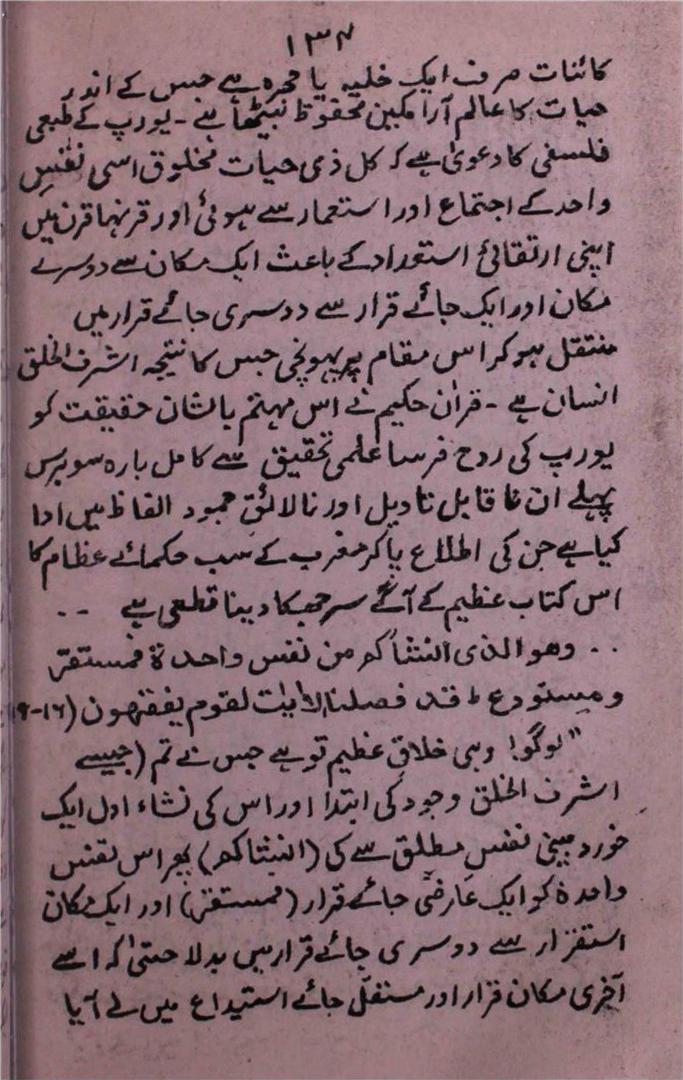 ۱۳۴
کائنات صرف ایک خلیہ یا حجرہ ہے جس کے اندر
حیات کا عالم آرا مکین محفوظ بیٹھا ہے - یورپ کے طبعی
فلسفی کا دعویٰ ہے کہ کل ذی حیات مخلوق اسی نفسِ
واحد کے اجتماع اور استعمار سے ہوئی اور قرنہا قرن میں
اپنی ارتقائی استعداد کے باعث ایک مکان سے دوسرے
مکان اور ایک جائے قرار سے دوسری جائے قرار میں
منتقل ہو کر اس مقام پر پہونچی جس کا نتیجہ اشرف الخلق
انسان ہے - قرآن حکیم نے اس مہتم بالشان حقیقت کو
یورپ کی روح فرسا علمی تحقیق سے کامل بارہ سو برس
پہلے ان نا قابل تاویل اور نا لائق جمود الفاظ میں ادا
کیا ہے جن کی اطلاع پا کر مغرب کے سب حکمائے عظام کا
اس کتاب عظیم کے آگے سر جھکا دینا قطعی ہے - -
. . وهوالذی انشاکم من نفس واحدة فمستقر
ومستودع ط قد فصلنا الایٰت لقوم یفقهون (۱۶-۹
"لوگو! وہی خلاقِ عظیم تو ہے جس نے تم (جیسے
اشرف الخلق وجود کی ابتدا اور اس کی نشاء اول ایک
خورد بینی نفسِ مطلق سے کی (انشاکم) پھر اس نفس
واحدة کو ایک عارضی جائے قرار (فمستقر) اور ایک مکان
استقرار سے دوسری جائے قرار میں بدلا حتیٰ کہ اسے
آخری مکان قرار اور مستقل جائے استیداع میں لے آیا